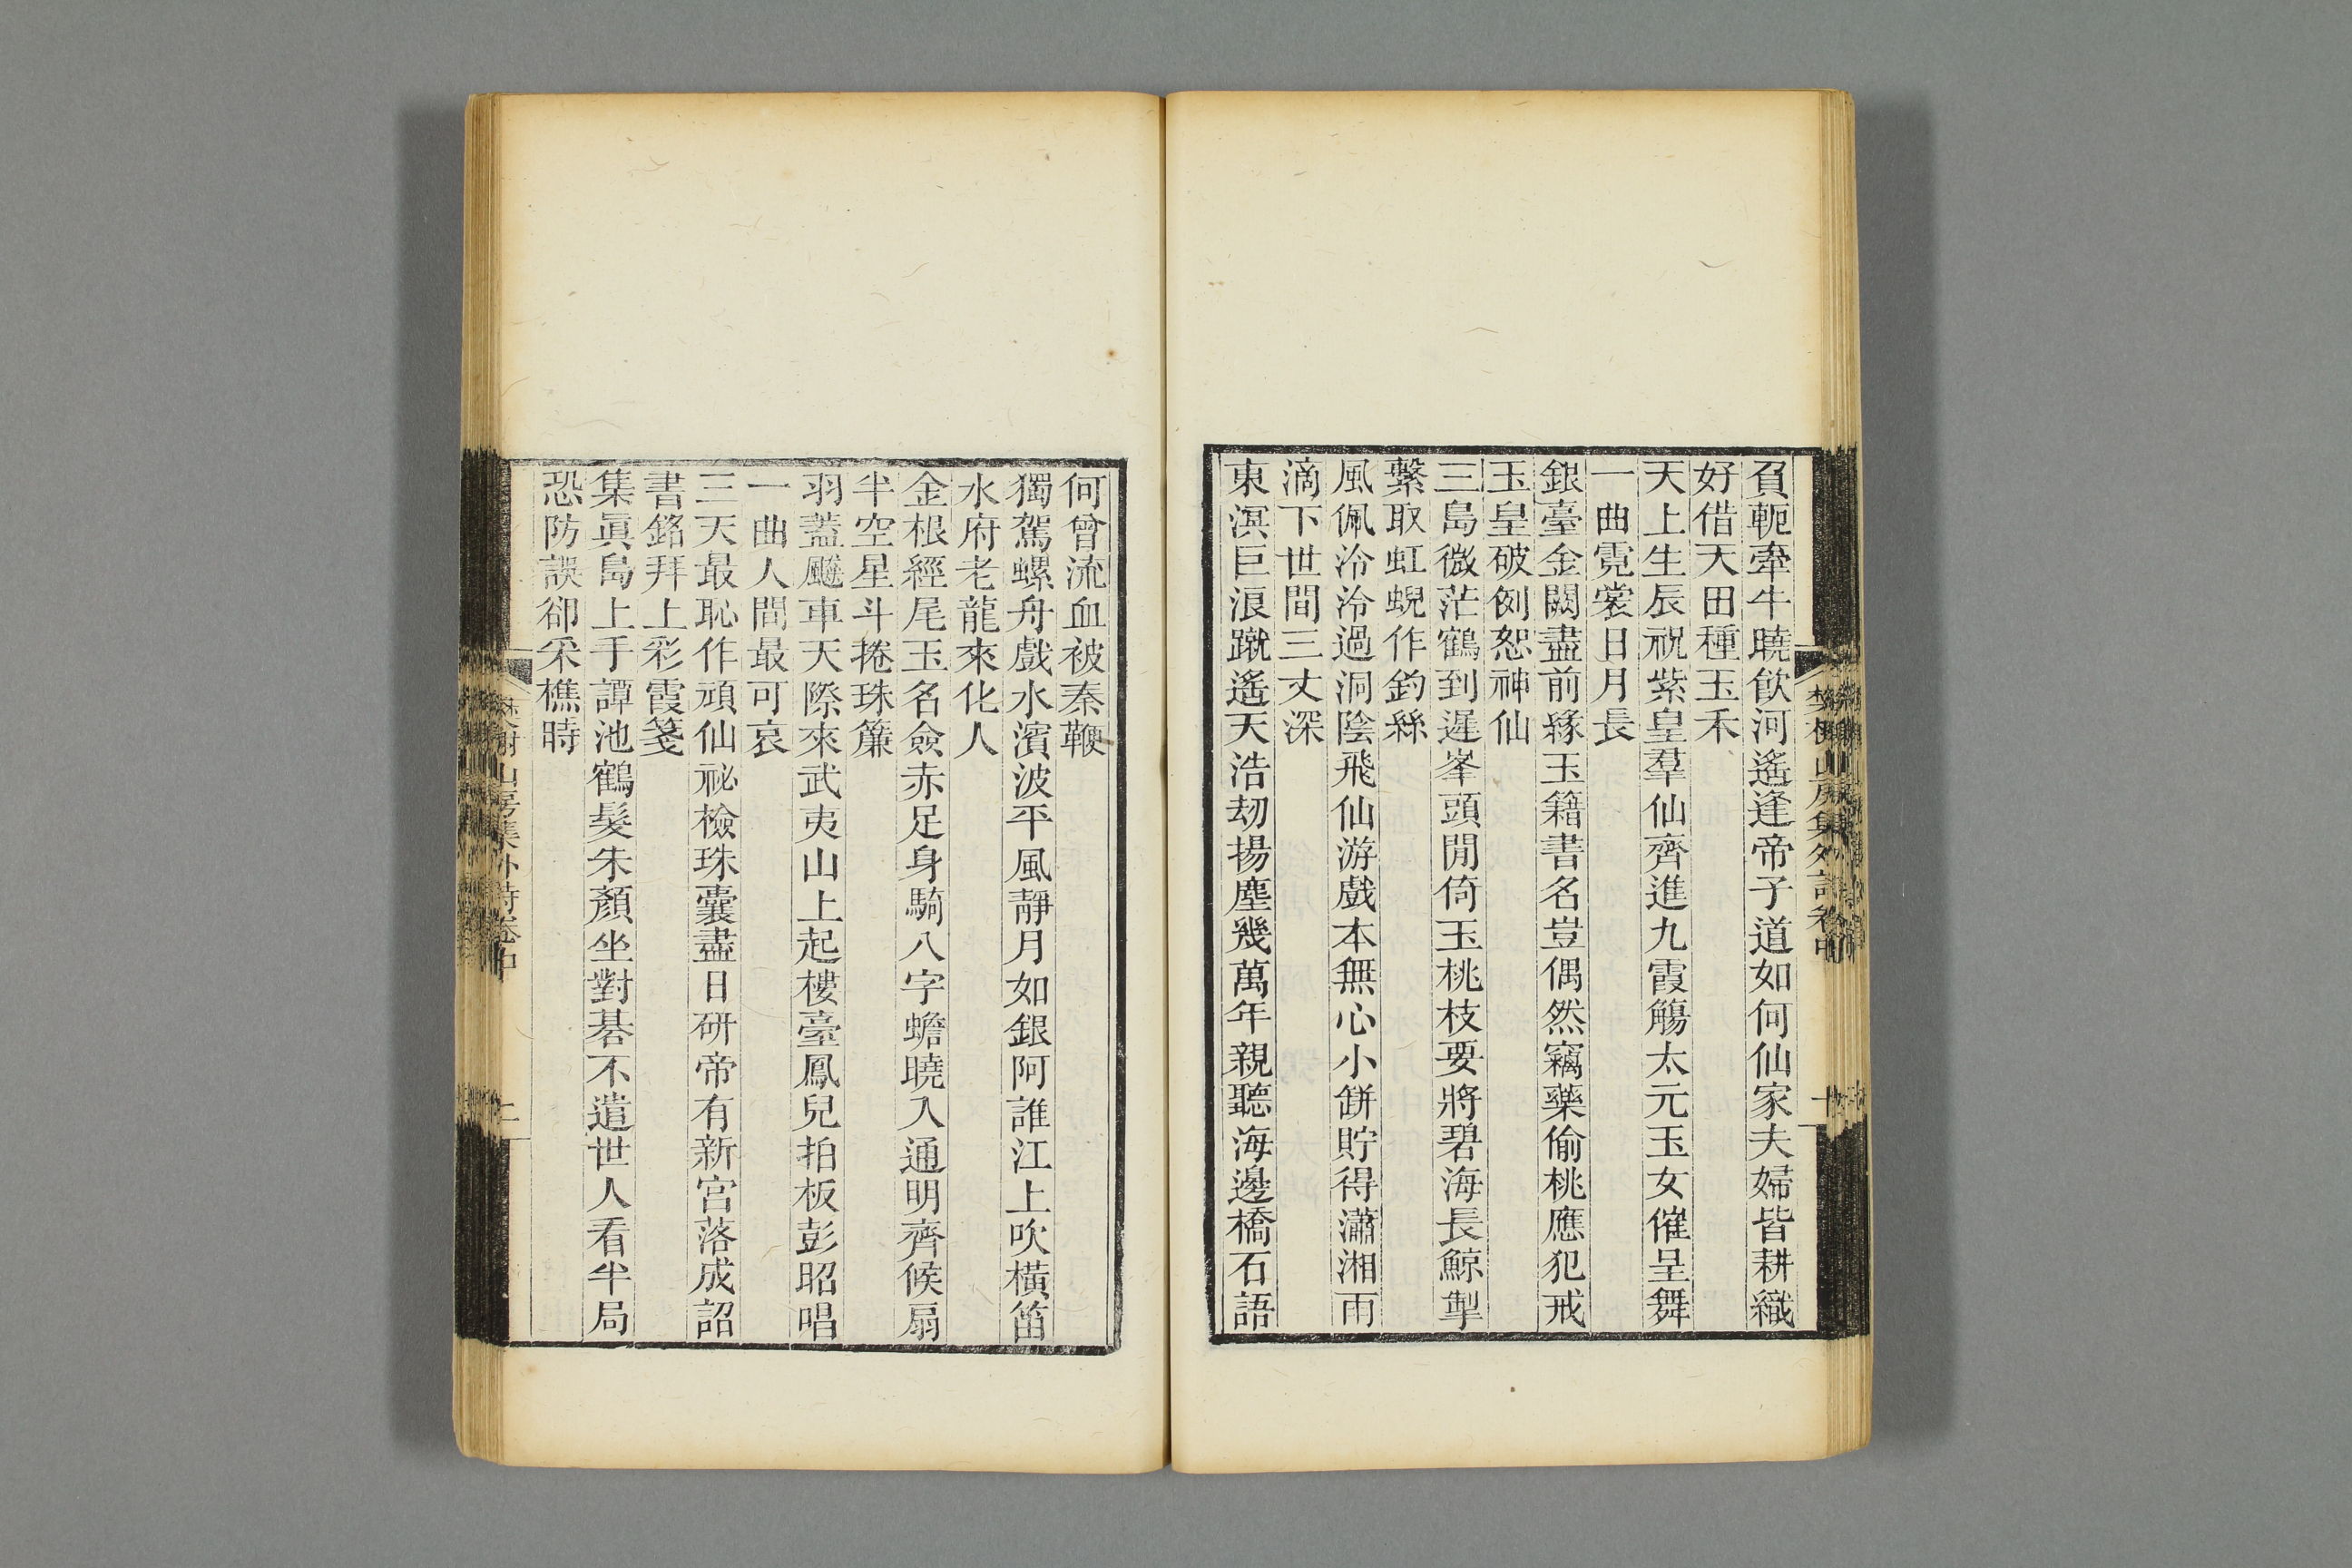 負軛牽牛曉飲河遙逢帝子道如何仙家夫婦皆耕織
好借天田種玉禾
天上生辰祝紫皇羣仙齊進九霞觴太元玉女催呈舞
一曲霓裳日月長
銀臺金闕盡前緣玉籍書名豈偶然竊藥偷桃應犯戒
玉皇破例恕神仙
三島微茫鶴到遲峯頭閒倚玉桃枝要將碧海長鯨掣
繫取虹蜺作釣絲
風佩泠泠過洞陰飛仙游戲本無心小餠貯得瀟湘雨
滴下世間三丈深
東溟巨浪蹴遙天浩劫揚塵幾萬年親聽海邊橋石語
何曾流血被秦鞭
獨駕螺舟戲水濱波平風靜月如銀阿誰江上吹橫笛
水府老龍來化人
金根經尾玉名僉赤足身騎八字蟾曉入通明齊候扇
半空星斗捲珠簾
羽蓋飈車天際來武夷山上起樓臺鳳兒拍板彭昭唱
一曲人間最可哀
三天最恥作頑仙祕檢珠囊盡日研帝有新宮落成詔
書銘拜上彩霞箋
集眞島上手譚池鶴髮朱顏坐對碁不遣世人看半局
恐防誤卻采樵時
山房集外詩卷中